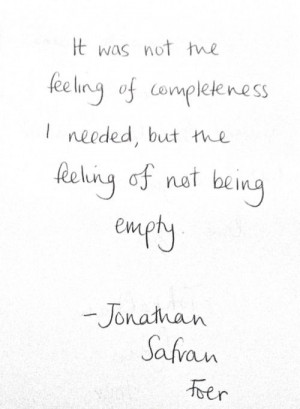 It was not the
feeling of completeness
I needed, but the
feeling of not being
empty.
-Jonathan
Safran
Foer